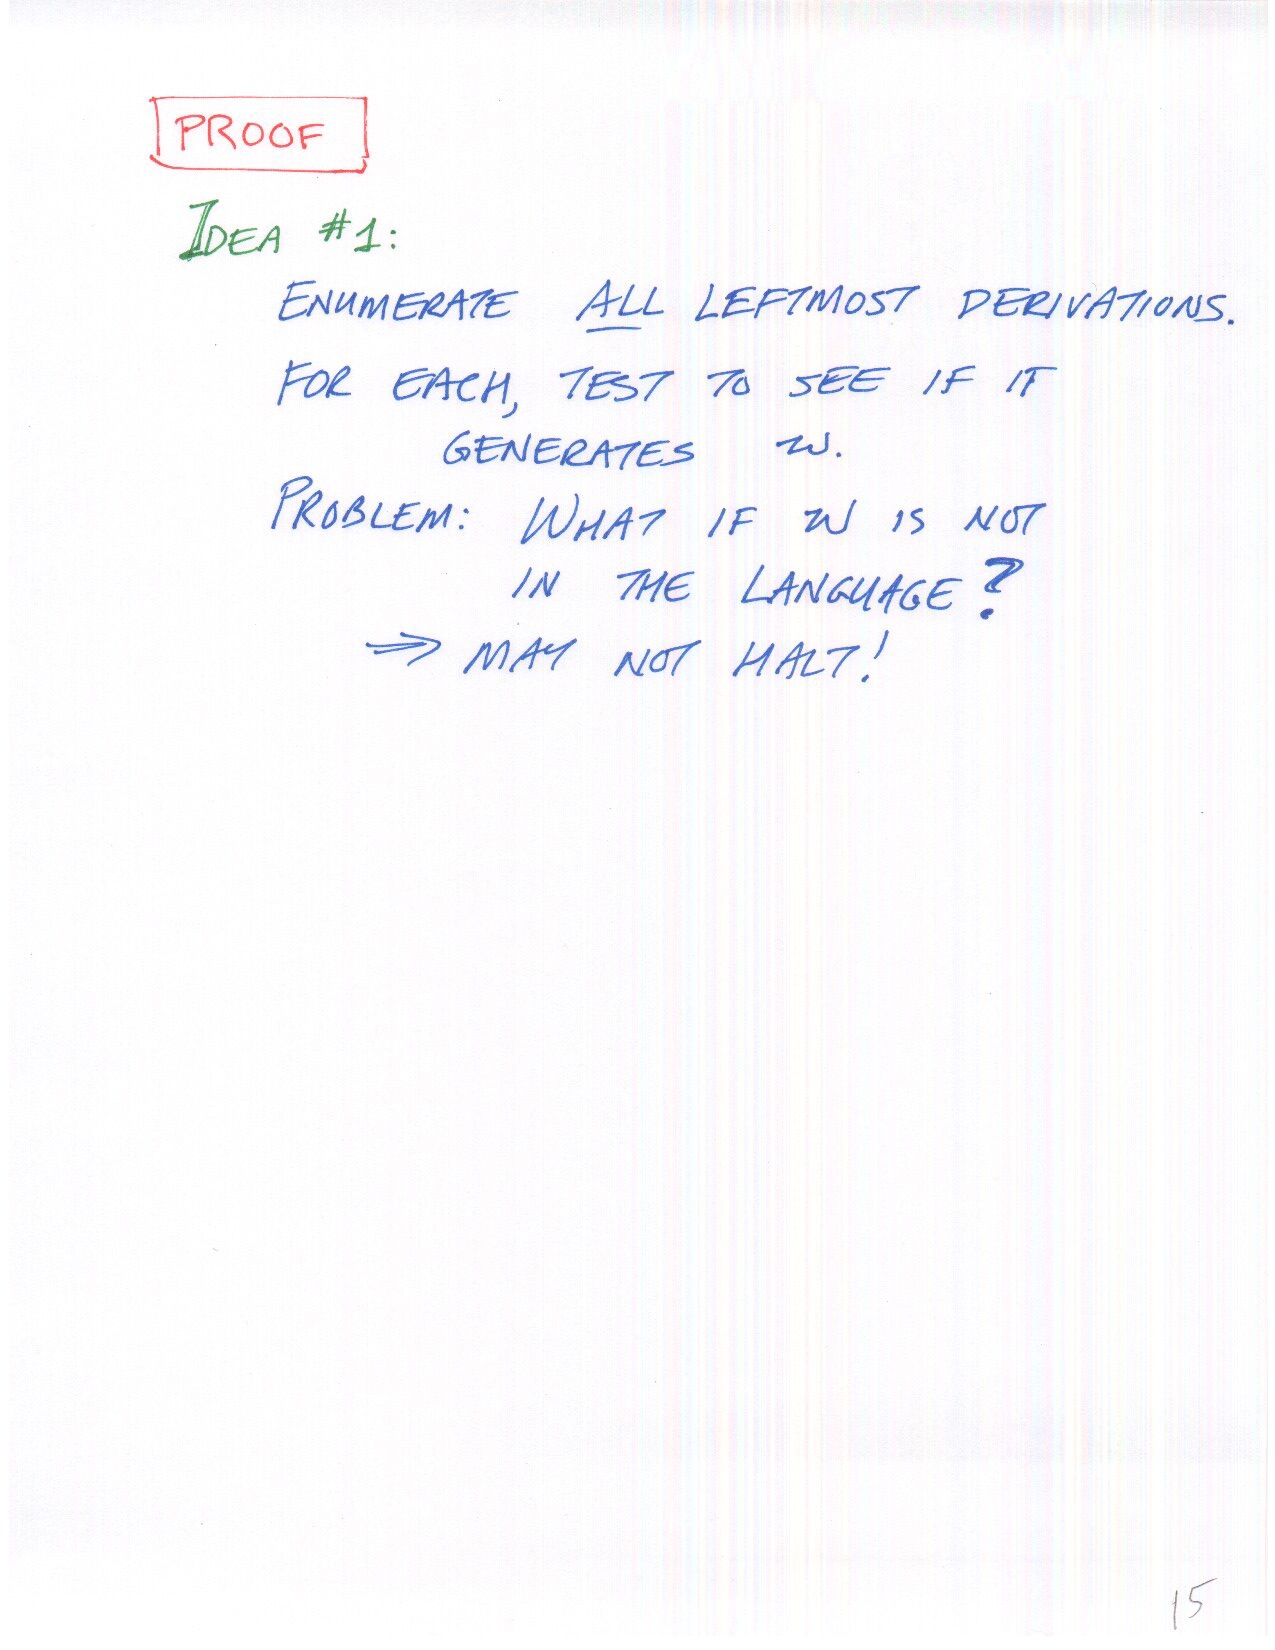 PROOF
IDEA #1:
ENUMERATE ALL LEFTMOST DERIVATIONS.
FOR EACH, TEST TO SEE IF IT
GENERATES w.
PROBLEM: WHAT IF w IS NOT
IN THE LANGUAGE?
⇒ MAY NOT HALT!
15